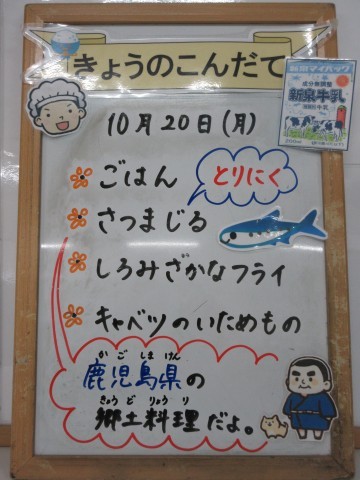 きょうのこんだて
成分無調整
新泉牛乳
200ml
10月20日(月)
ごはん
とりにく
さつまじる
しろみざかなフライ
キャベツのいためもの
かごしまけん
鹿児島県の
きょうどりょうり
郷土料理だよ。